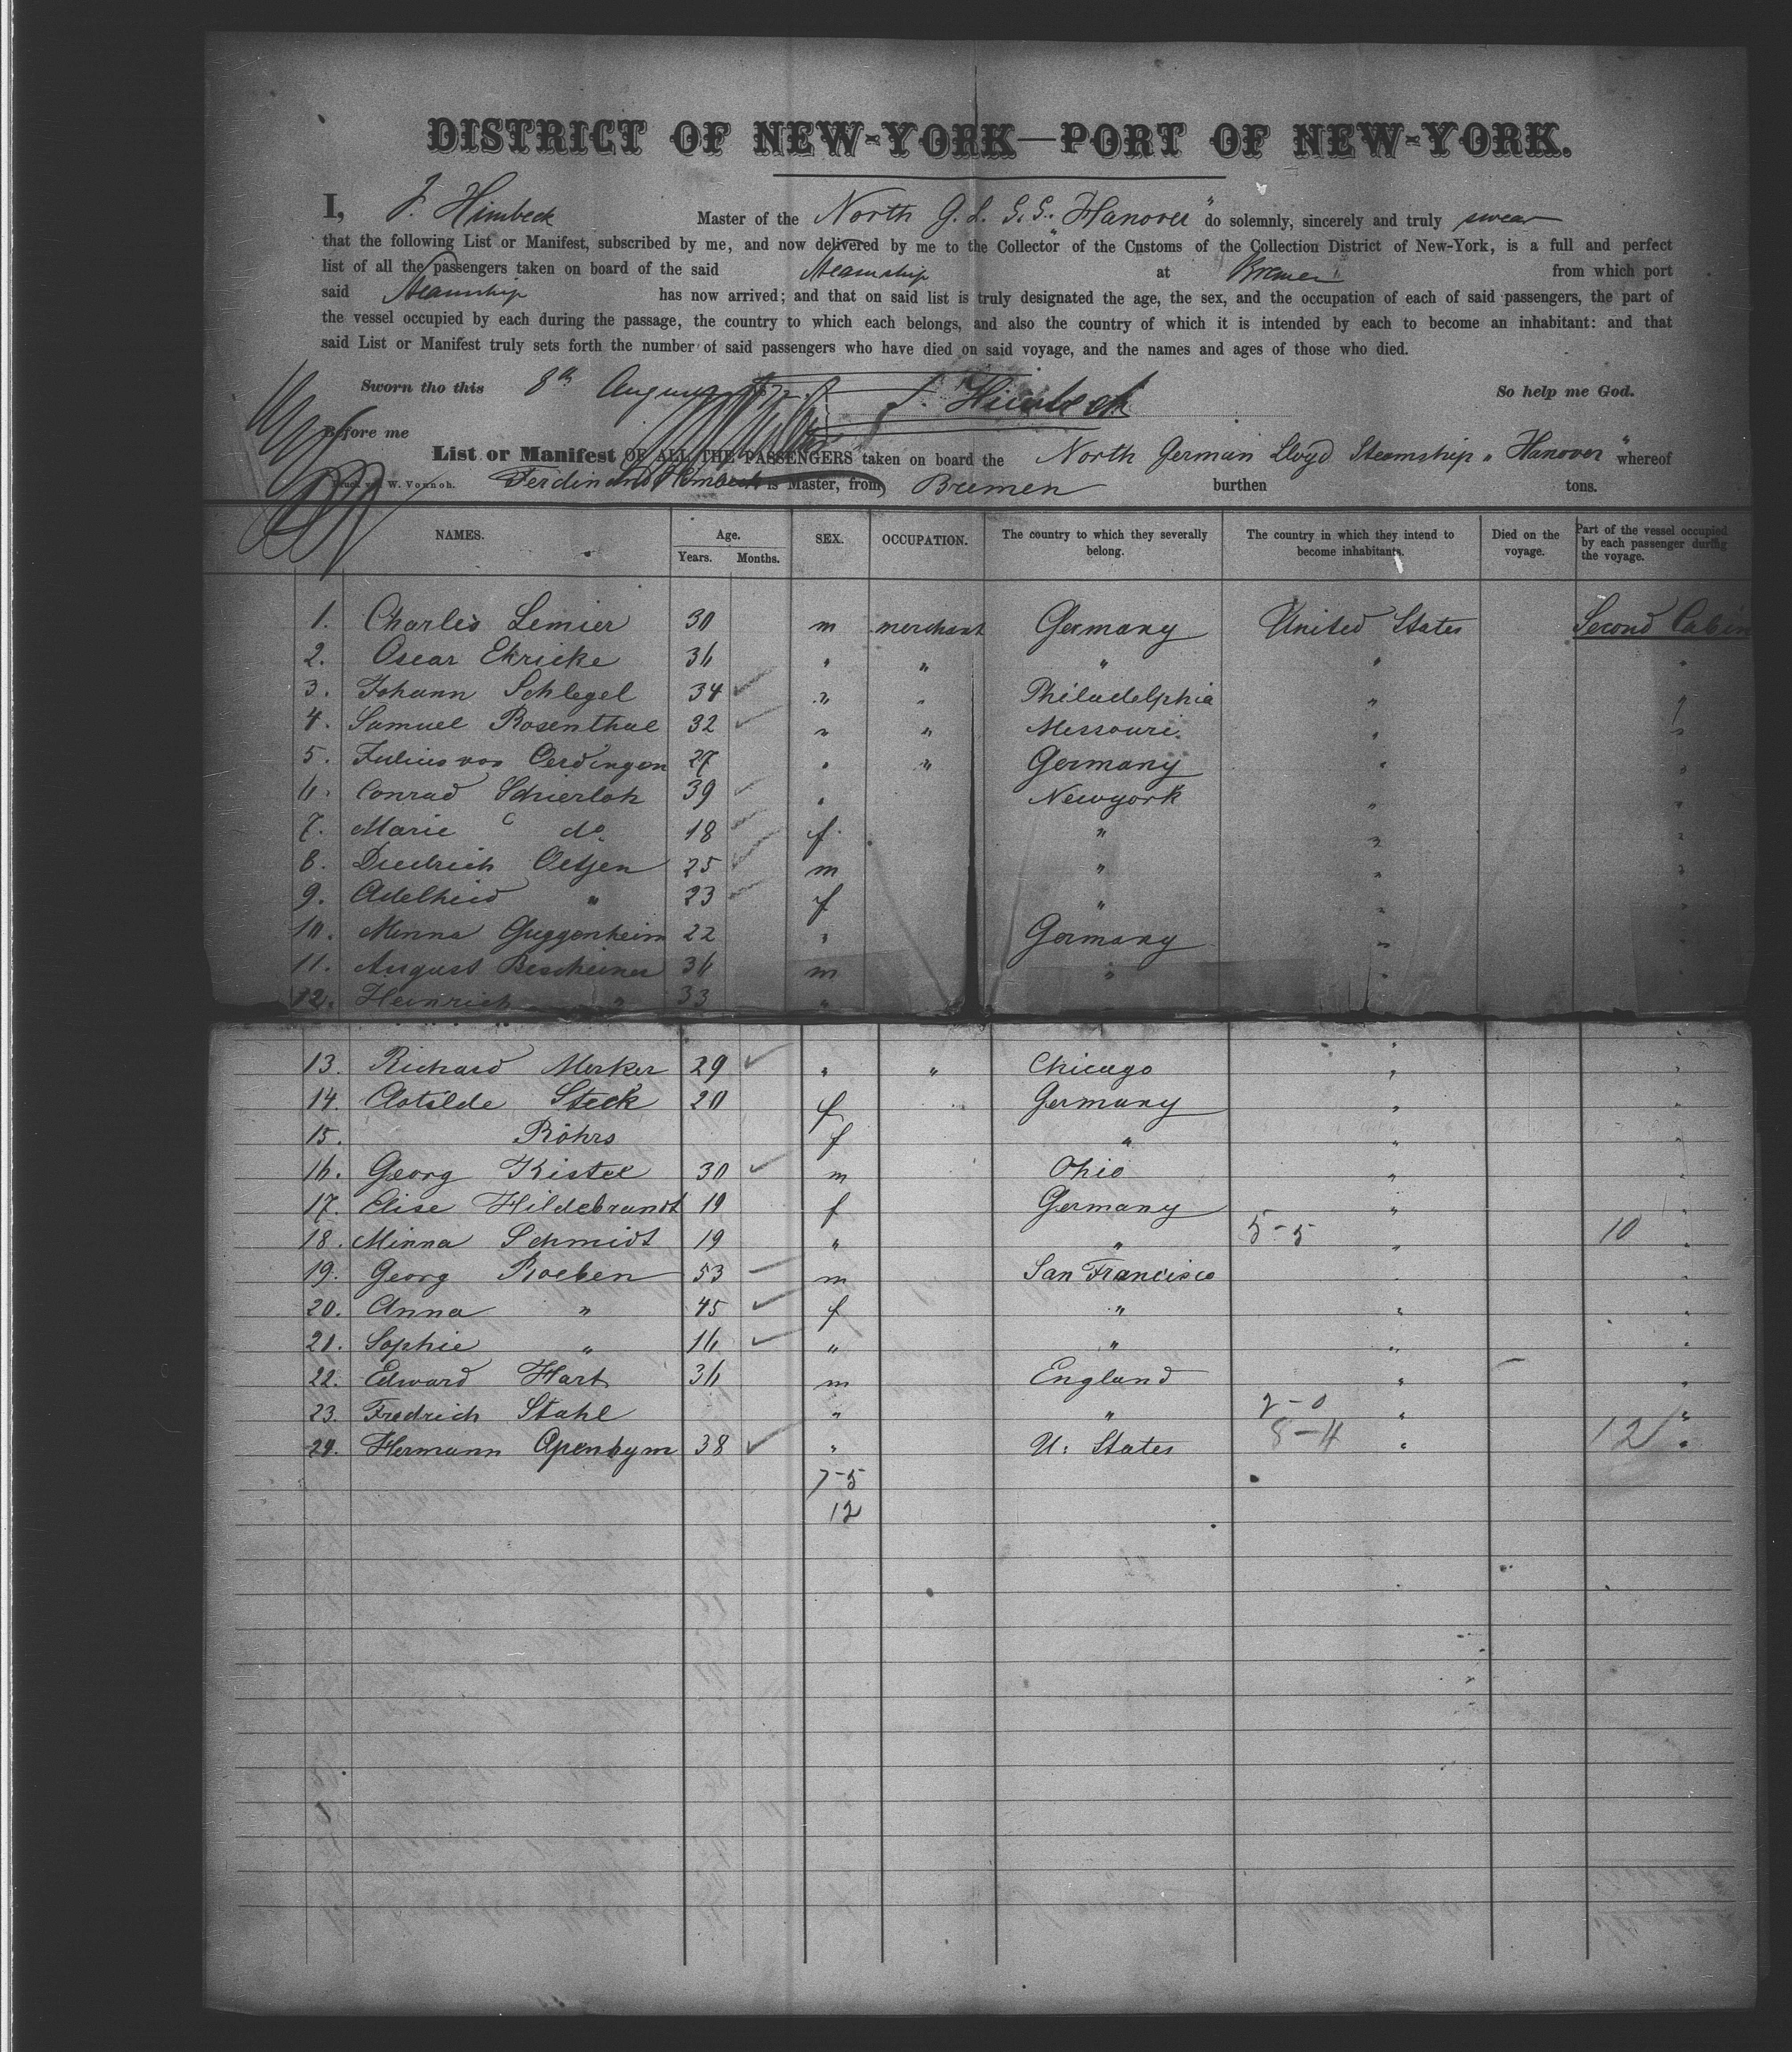 DISTRICT OF NEW-YORK—PORT OF NEW-YORK.
I, F. Himbeck Master of the North G. L. S. S. "Hanover" do solemnly, sincerely and truly swear
that the following List or Manifest, subscribed by me, and now delivered by me to the Collector of the Customs of the Collection District of New-York, is a full and perfect
list of all the passengers taken on board of the said Steamship at Bremen from which port
said Steamship has now arrived; and that on said list is truly designated the age, the sex, and the occupation of each of said passengers, the part of
the vessel occupied by each during the passage, the country to which each belongs, and also the country of which it is intended by each to become an inhabitant: and that
said List or Manifest truly sets forth the number of said passengers who have died on said voyage, and the names and ages of those who died.
Sworn tho this 8th August F. Himbeck So help me God.
Before me
List or Manifest OF ALL THE PASSENGERS taken on board the North German Lloyd Steamship "Hanover" whereof
W. Vonnoh. Ferdinand Himbeck is Master, from Bremen burthen tons.
NAMES. Age. Years. Months. SEX. OCCUPATION. The country to which they severally belong. The country in which they intend to become inhabitants. Died on the voyage. Part of the vessel occupied by each passenger during the voyage.
1. Charles Lemier 30 m merchant Germany United States Second Cabin
2. Oscar Ehricke 36 " " " " "
3. Johann Schlegel 34 " " Philadelphia " "
4. Samuel Rosenthal 32 " " Missouri " "
5. Julius von Oerdingen 27 " " Germany " "
6. Conrad Schierloh 39 " Newyork " "
7. Marie do 18 f " " "
8. Diedrich Oetjen 25 m " " "
9. Adelheid " 23 f " " "
10. Minna Guggenheim 22 " Germany " "
11. August Bescheiner 36 m " " "
12. Heinrich " 33 "
13. Richard Merker 29 " " Chicago " "
14. Clotilde Steck 20 f Germany " "
15. Röhrs f " " "
16. Georg Kistel 30 m Ohio " "
17. Elise Hildebrandt 19 f Germany " "
18. Minna Schmidt 19 " " 5-5 " 10 "
19. Georg Roeben 53 m San Francisco " "
20. Anna " 45 f " " "
21. Sophie " 16 " " " "
22. Edward Hart 36 m England " "
23. Fredrich Stahl " " 2-0 " "
24. Hermann Openhym 38 " U. States 8-4 " 12 "
7-5
12